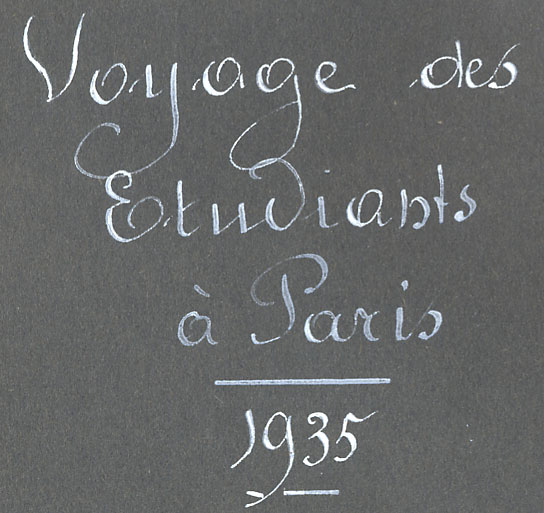 Voyage des
Etudiants
à Paris
1935